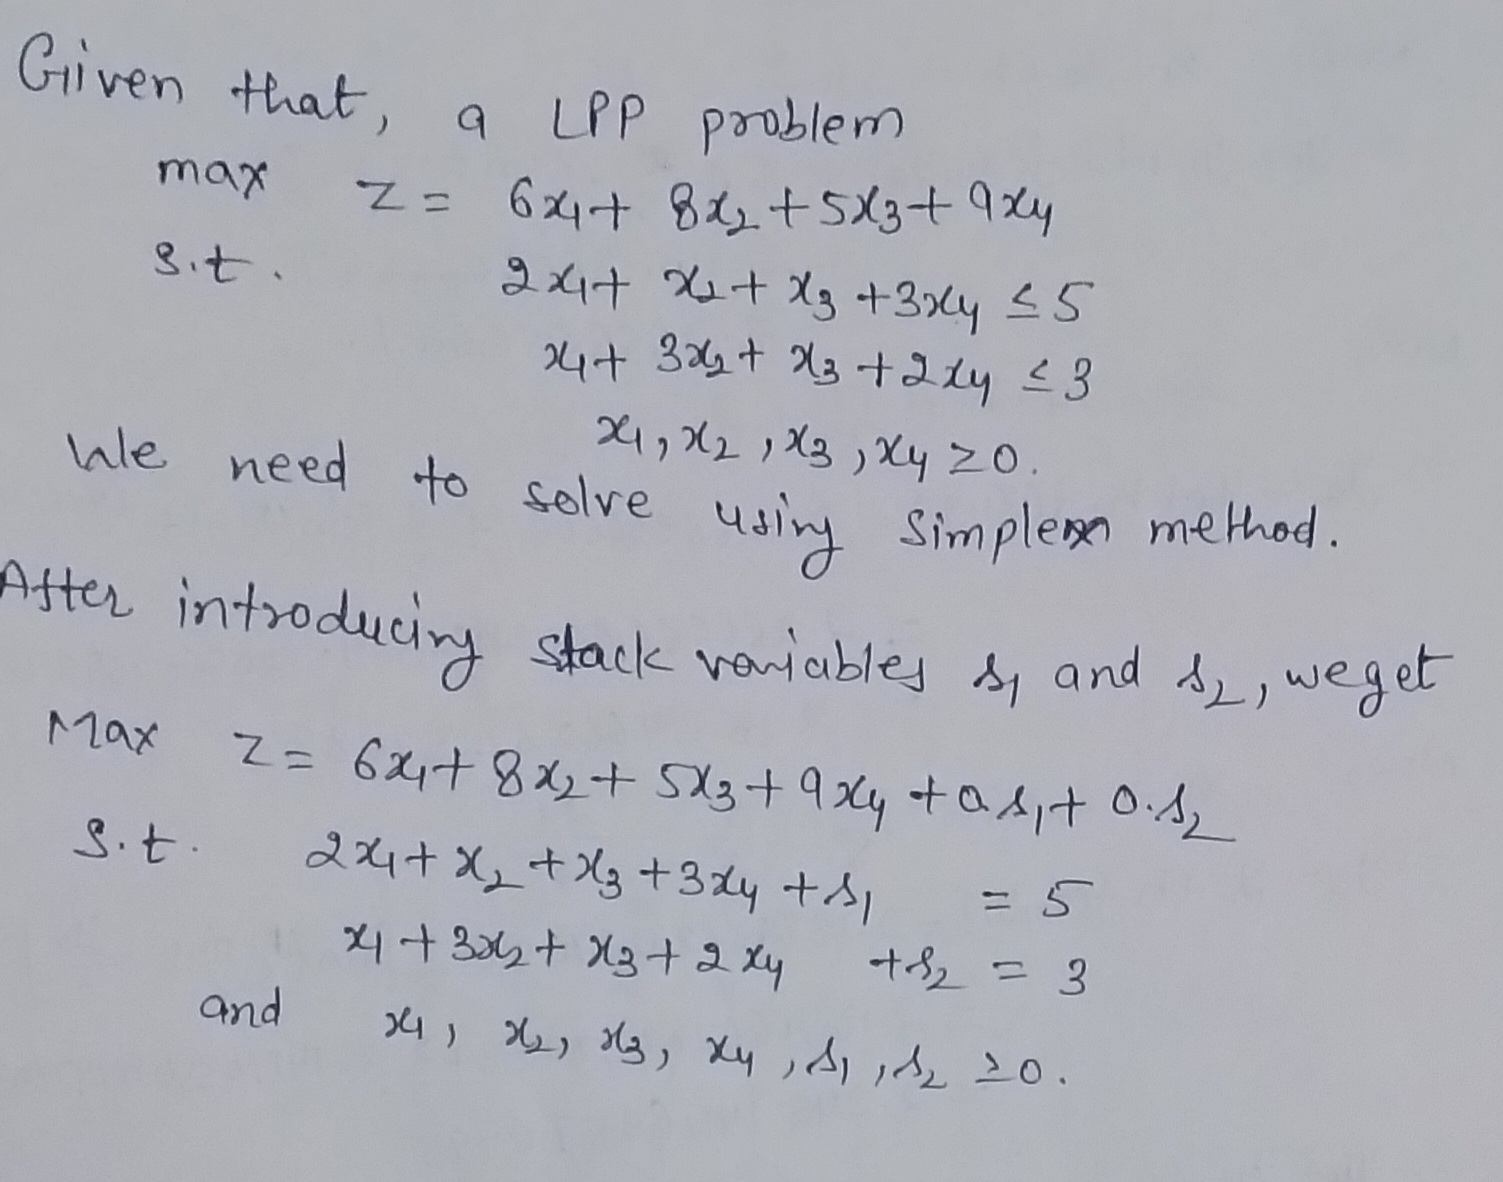 Given that, a LPP problem
max z = 6x₁ + 8x₂ + 5x₃ + 9x₄
s.t. 2x₁ + x₂ + x₃ + 3x₄ ≤ 5
x₁ + 3x₂ + x₃ + 2x₄ ≤ 3
x₁, x₂, x₃, x₄ ≥ 0.
We need to solve using simplex method.
After introducing stack variables s₁ and s₂, we get
Max z = 6x₁ + 8x₂ + 5x₃ + 9x₄ + 0.s₁ + 0.s₂
s.t. 2x₁ + x₂ + x₃ + 3x₄ + s₁ = 5
x₁ + 3x₂ + x₃ + 2x₄ + s₂ = 3
and x₁, x₂, x₃, x₄, s₁, s₂ ≥ 0.